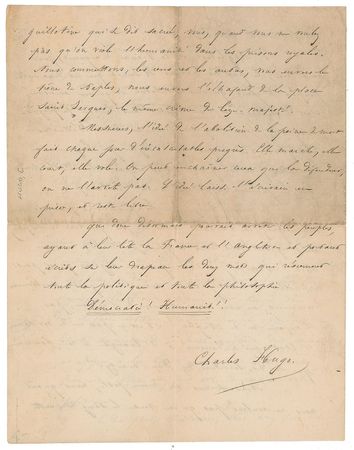 guillotine qui se dit sacrée, nous, quand nous ne voulons
pas qu'on viole l'humanité dans les prisons royales.
Nous commettons, les uns et les autres, nous envers le
trône de Naples, nous envers l'échafaud de la place
Saint Georges, le même crime de lèze-majesté.
Messieurs, l'idée de l'abolition de la peine de mort
fait chaque jour d'incalculables progrès. Elle marche, elle
court, elle vole. On peut enchaîner ceux qui la défendent,
on ne l'arrête pas. L'idée laisse l'écrivain en
prison, et reste libre.
Qui donc désormais pourrait arrêter les peuples
ayant à leur tête la France et l'Angleterre et portant
écrits sur leur drapeau les deux mots qui résument
toute la politique et toute la philosophie
Démocratie! Humanité!
Charles Hugo.